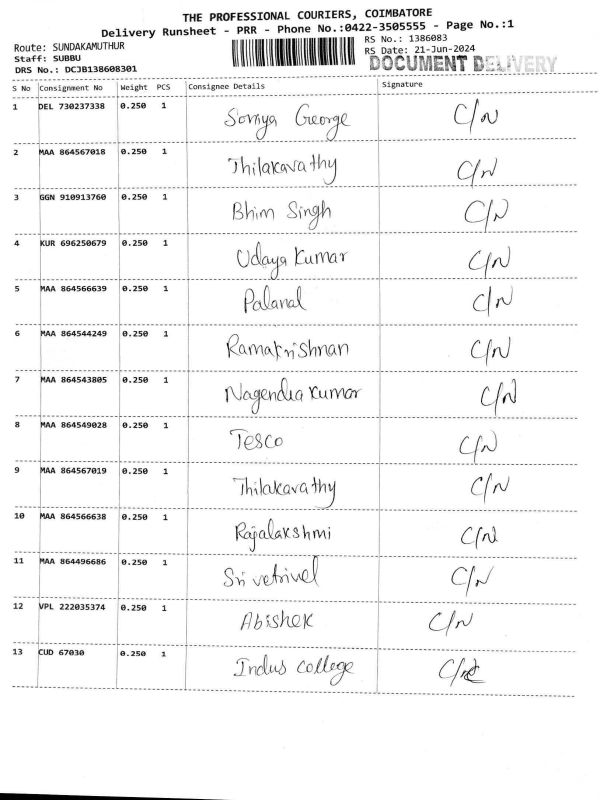 THE PROFESSIONAL COURIERS, COIMBATORE
Delivery Runsheet - PRR - Phone No.:0422-3505555 - Page No.:1
Route: SUNDAKAMUTHUR RS No.: 1386083
Staff: SUBBU RS Date: 21-Jun-2024
DRS No.: DCJB138608301 DOCUMENT DELIVERY
S No Consignment No Weight PCS Consignee Details Signature
1 DEL 730237338 0.250 1 Somya George C/N
2 MAA 864567018 0.250 1 Thilakavathy C/N
3 GGN 910913760 0.250 1 Bhim Singh C/N
4 KUR 696250679 0.250 1 Udaya Kumar C/N
5 MAA 864566639 0.250 1 Palanal C/N
6 MAA 864544249 0.250 1 Ramakrishnan C/N
7 MAA 864543805 0.250 1 Nagendra Kumar C/N
8 MAA 864549028 0.250 1 Tesco C/N
9 MAA 864567019 0.250 1 Thilakavathy C/N
10 MAA 864566638 0.250 1 Rajalakshmi C/N
11 MAA 864496686 0.250 1 Sri vetrivel C/N
12 VPL 222035374 0.250 1 Abishek C/N
13 CUD 67030 0.250 1 Indus college C/N